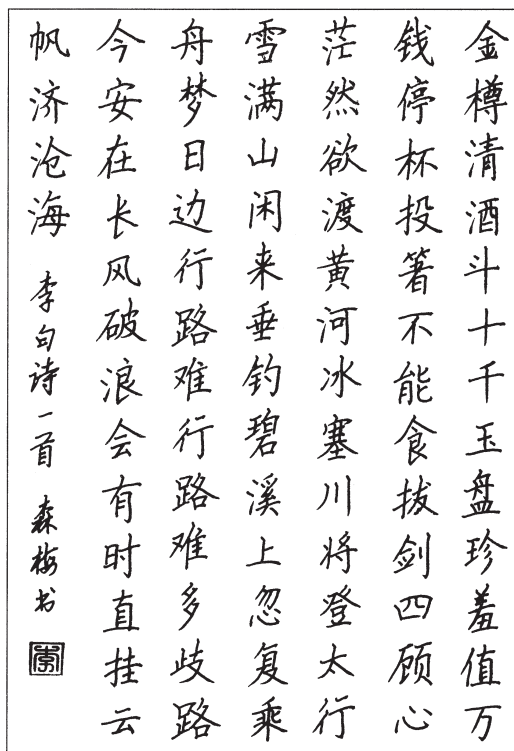 金樽清酒斗十千玉盘珍羞值万
钱停杯投箸不能食拔剑四顾心
茫然欲渡黄河冰塞川将登太行
雪满山闲来垂钓碧溪上忽复乘
舟梦日边行路难行路难多歧路
今安在长风破浪会有时直挂云
帆济沧海 李白诗一首 森梅书